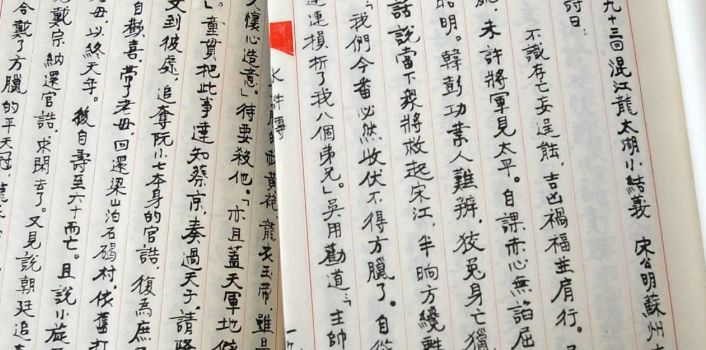 九十三回 混江龍太湖小結義 宋公明蘇州
詩曰:
不識存亡妄逞能,吉凶禍福並肩行。
未許將軍見太平。自課赤心無諂屈
昭明。韓彭功業人難辨,狡兔身亡獵
話說當下眾將救起宋江,半晌方纔甦
「我們今番必然收伏不得方臘了。自從
連損折了我八個弟兄」。吳用勸道:「主帥
水滸傳
的赭黃袍、龍衣玉帶,雖是
懷心造意。」待要殺他。「亦且蓋天軍地僻
」。童貫把此事達知蔡京,奏過天子,請降
又到彼處,追奪阮小七本身的官誥,復為庶
自歡喜,帶了老母,回還梁山泊石碣村,依舊打
老母以終天年。後自壽至六十而亡。且說小旋
見戴宗納還官誥,求閑去了。又見說朝廷追
戴了方臘的平天冠、龍衣